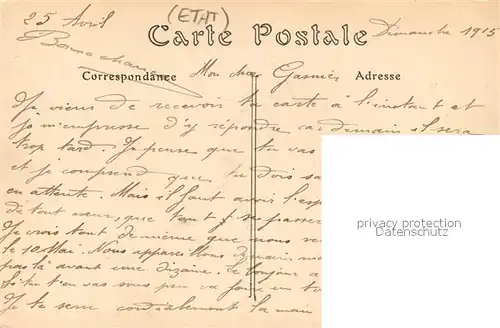 25 Avril (ETAT) Dimanche 1915
Carte Postale
Bonne chance
Correspondance Mon cher Garnier Adresse
Je viens de recevoir ta carte à l'instant et
je m'empresse d'y répondre car demain il sera
trop tard. Je pense que tu vas
et je comprends que tu dois sa
en attente. Mais il faut avoir l'esp
de tout cœur, que tout se passe
Je crois tout de même que nous
le 10 Mai. Nous
pas là avant une dizaine. Le bonjour a
Si tu t'en vas
Je te serre cordialement la main
privacy protection
Datenschutz